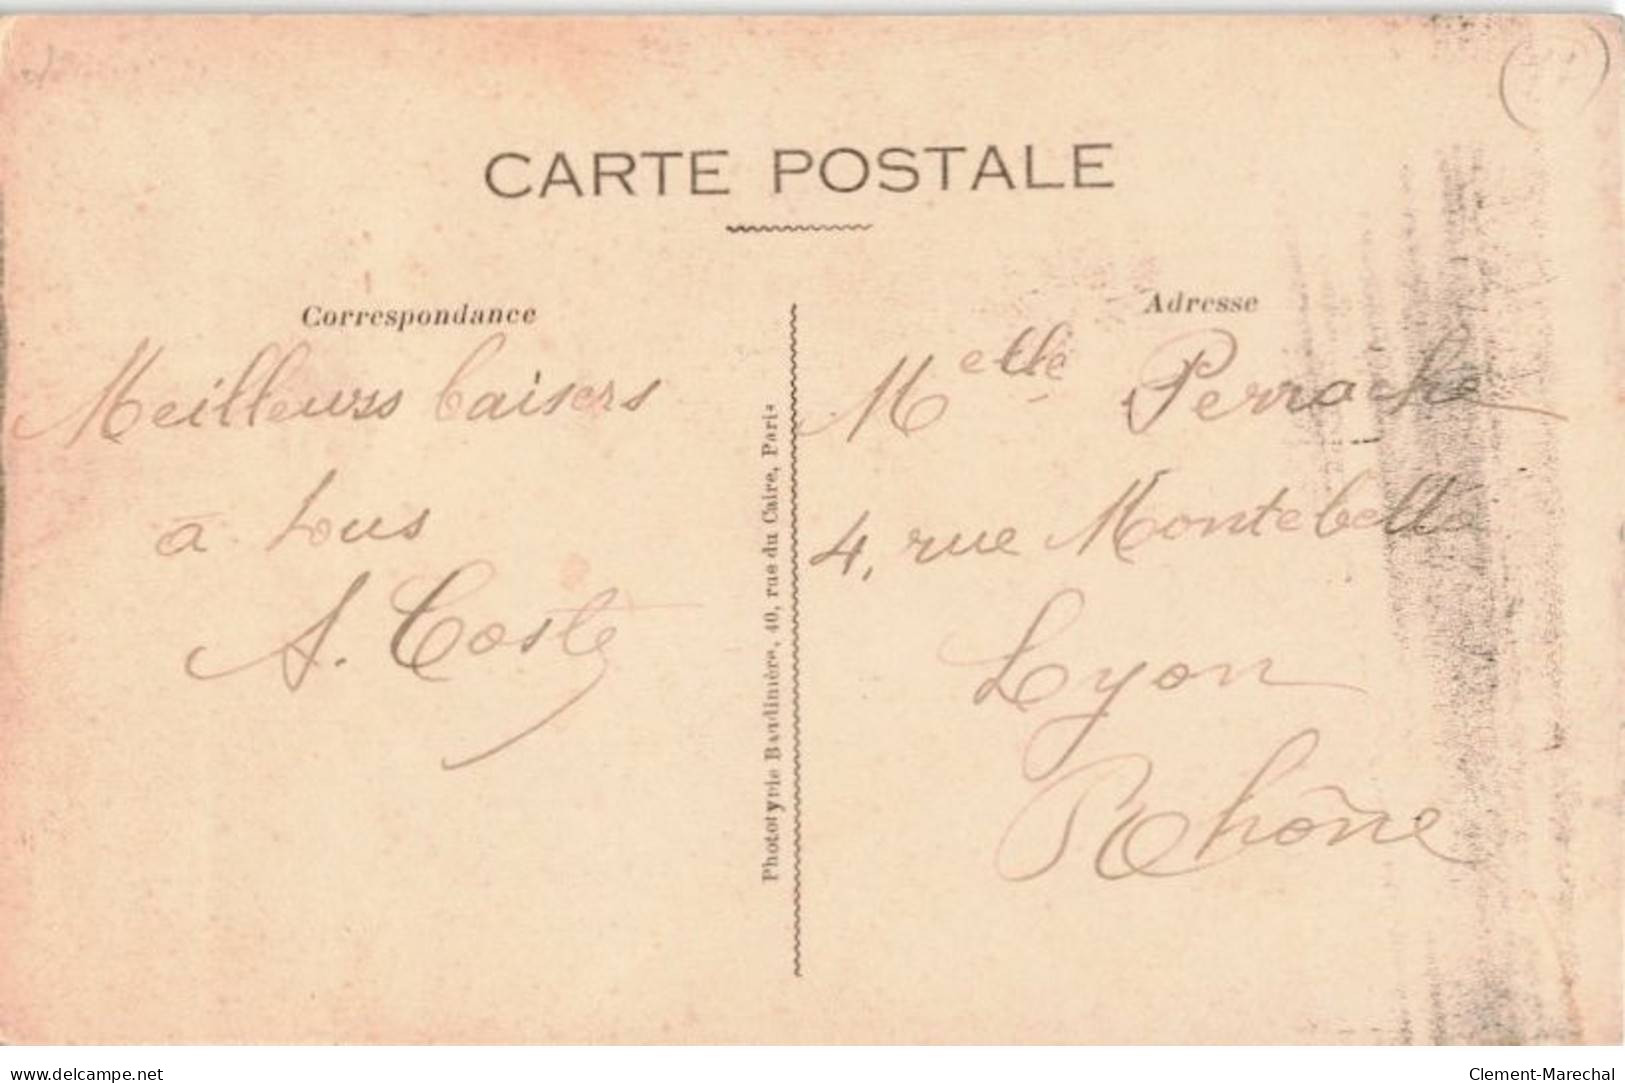 CARTE POSTALE
Correspondance
Meilleurs baisers
à tous
A. Coste
Phototypie Baudinière, 40, rue du Caire, Paris
Adresse
Melle Perrache
4, rue Montebello
Lyon
Rhône
www.delcampe.net
Clement-Marechal